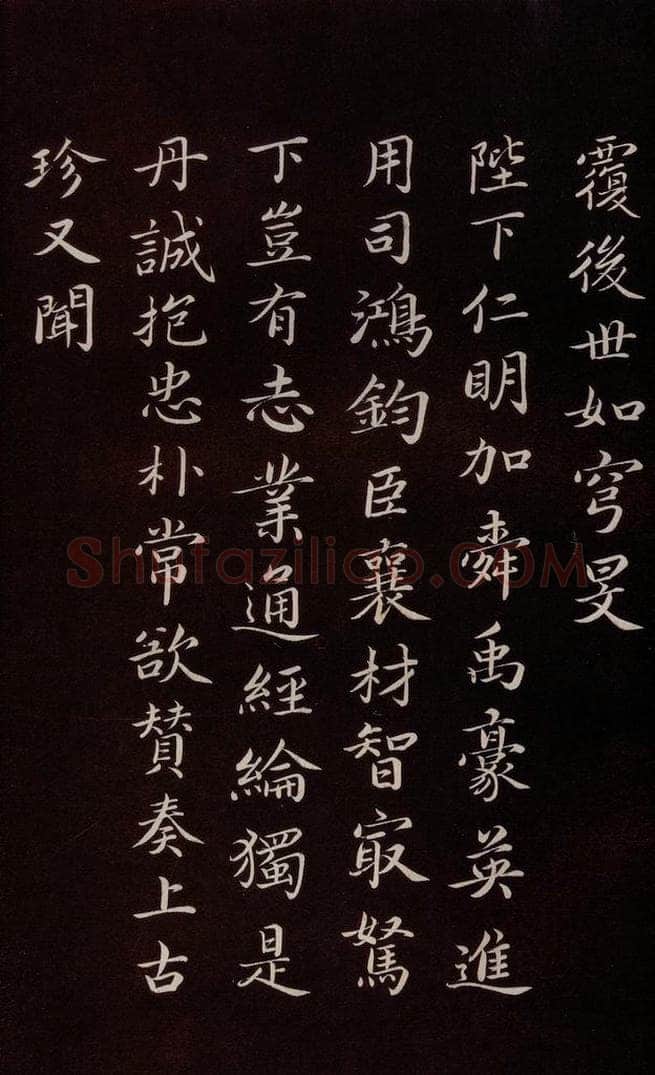 覆後世如穹旻
陛下仁明加舜禹豪英進
用司鴻鈞臣襄材智㝡駑
下豈有志業通經綸獨是
丹誠抱忠朴常欲贊奏上古
珍又聞
Shufaziliao.COM